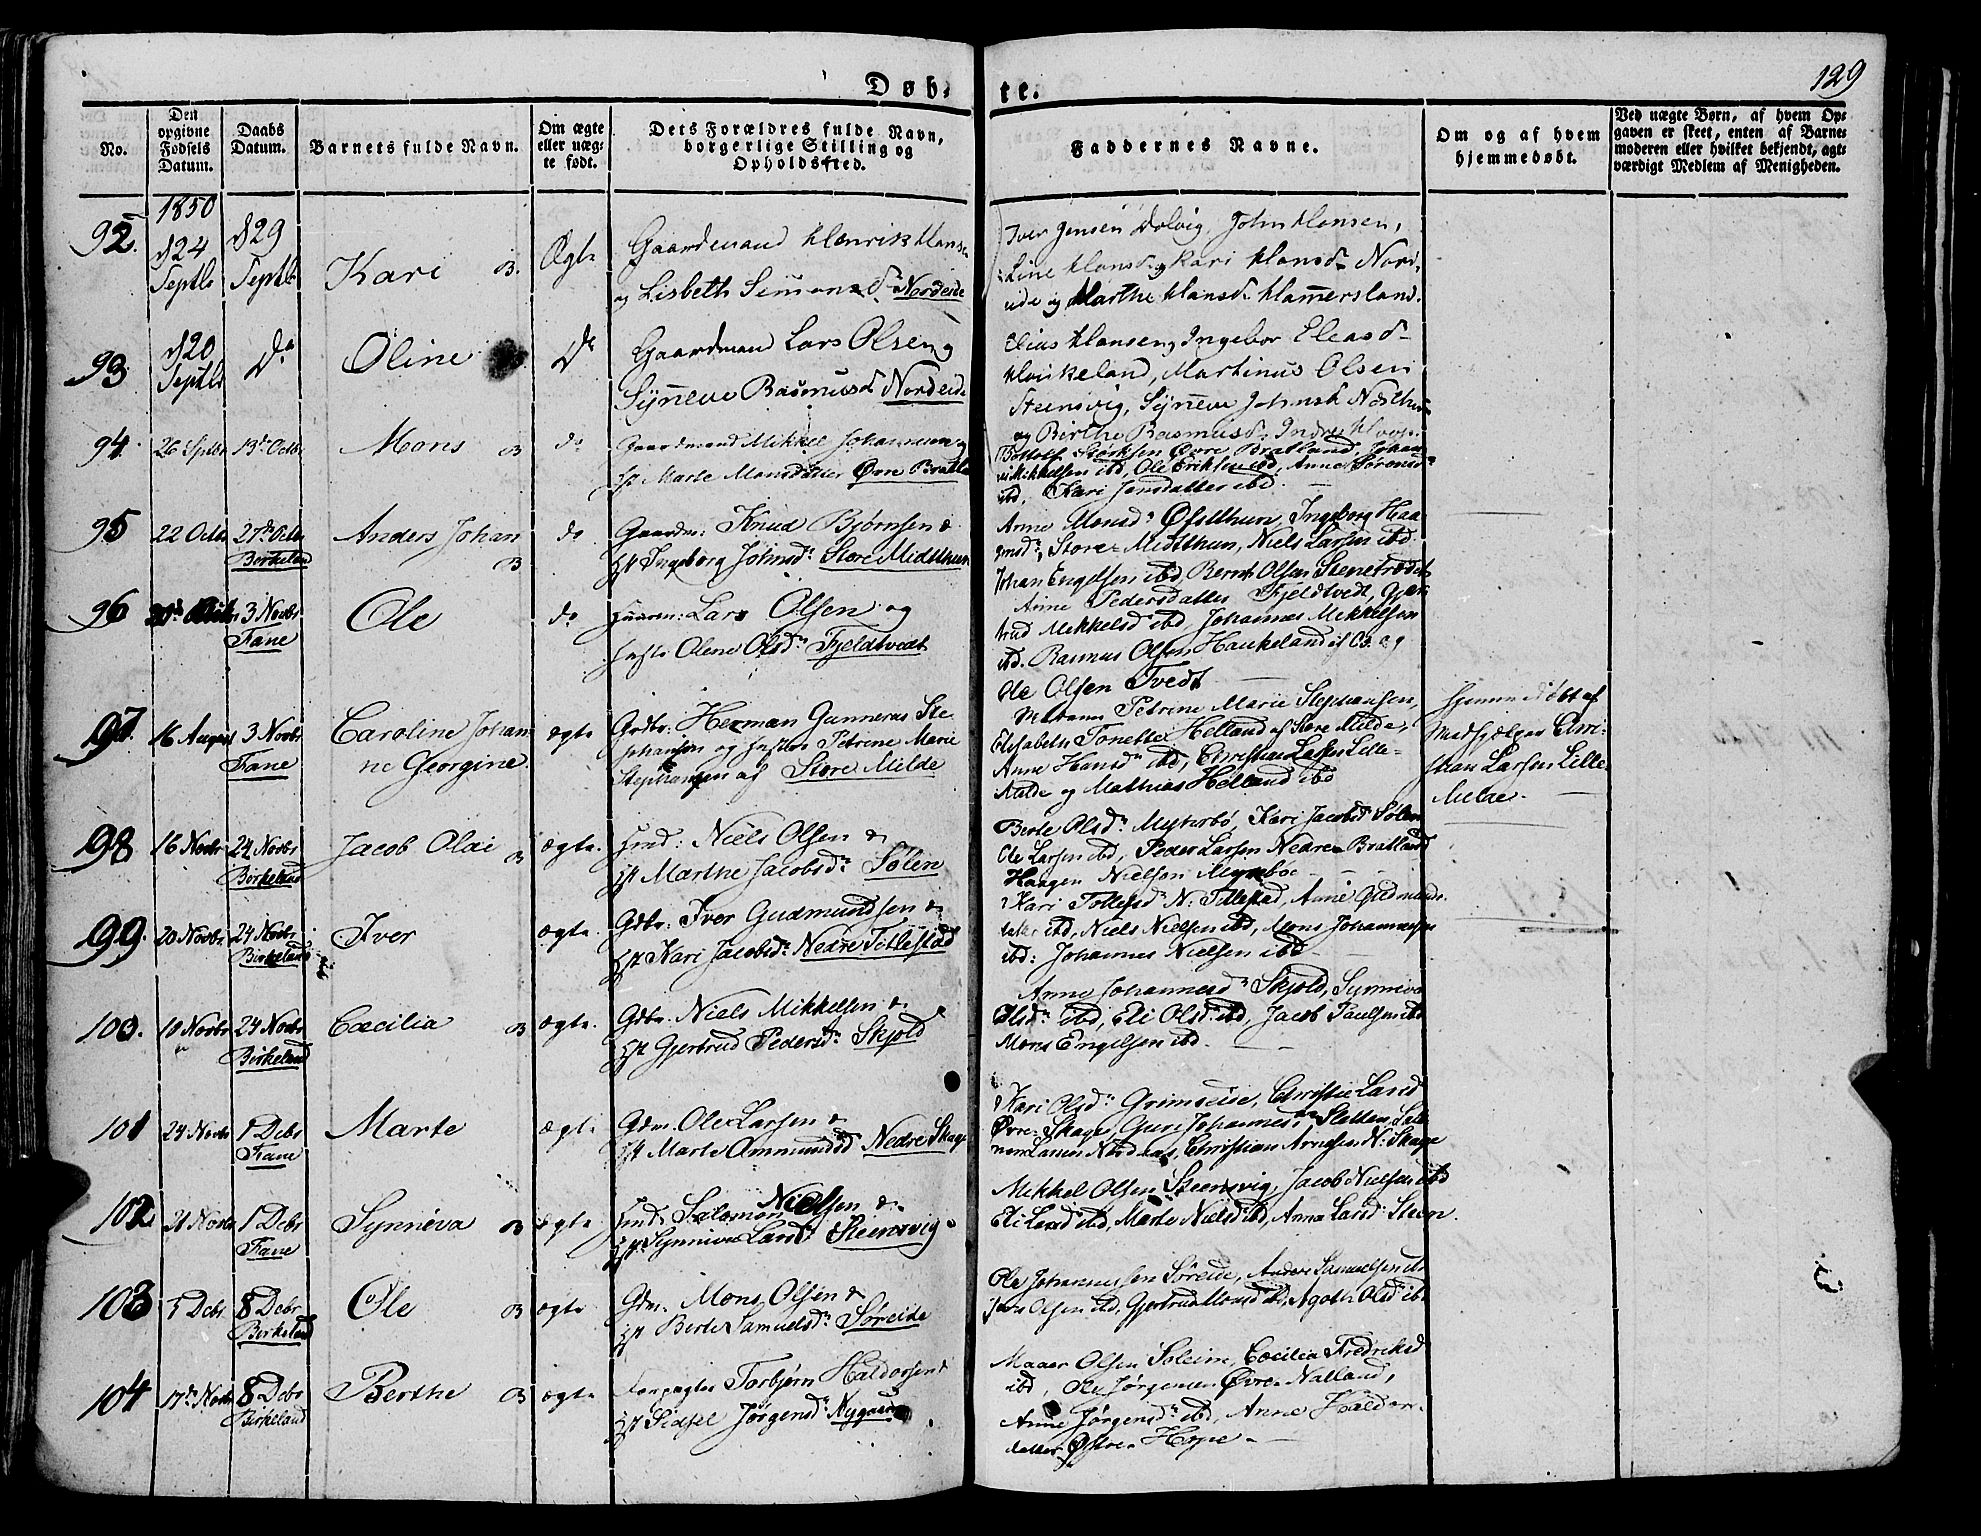 Døb- te.
129
No.
Den opgivne Fødsels Datum.
Daabs Datum.
Barnets fulde Navn.
Om ægte eller uægte født.
Dets Forældres fulde Navn, borgerlige Stilling og Opholdssted.
Faddernes Navne.
Om og af hvem hjemmedøbt.
Ved uægte Børn, af hvem Opgaven er skeet, enten af Barnemoderen eller hvilket bekjendt, agtværdigt Medlem af Menigheden.
1850
92.
d 24 Septb
d 29 Septb
Kari B.
Ægte
Gaardmand Henrik Hans
og Lisbeth Simonsd. Nordeide
Iver Jensen Dolvig, John Hansen,
Line Hansd og Kari Hansd Nord
eide og Marthe Hansd. Hamersland.
93
d 20 Septb
Do
Oline
Do
Gaardmand Lars Olsen og
Syneve Rasmusd Nordeide
Elias Hansen, Ingebor Eleasd
Houkeland, Martinus Olsen
Steensvig, Syneve Johnsd
og Birthe Rasmusd, Indre Hoop.
94.
26 Sptbr
13de Octb
Mons B
do
Gaardmand Mikkel Johannesen og
Hst Marte Monsdatter Øvre Bratla
Bottolf Størksen Øvre Bratland, Johan
nes Mikkelsen ibd, Ole Eriksen ibd, Anne Sørensd
ibd, Kari Jensdatter ibd.
95
22 Octbr
27de Octbr
Birkeland
Anders Johan
B
do
Gaardm: Knud Bjørnsen &
Hst Ingeborg Johnsd: Store Midtthun
Anne Monsd Øfstthun, Ingeborg Haa
gensd, Store Midtthun, Niels Larsen ibd
Johan Engelsen ibd, Bernt Olsen Stenetrædet
96
3 Novbr
Fane
Ole
do
Huusm: Lars Olsen og
Hustr Olene Olsd: Fjeldtvedt
Anne Pedersdatter Fjeldtvedt, Gjær
trud Mikkelsd ibd, Johannes Mikkelsen
ibd. Rasmus Olsen Haukeland og
Ole Olsen Tvedt
97
16 August
3 Novbr
Fane
Caroline Johan
ne Georgine.
ægte
Grdbr: Herman Gunnerus Ste
phansen og Hustru Petrine Marie
Stephansen af Store Milde
Madam Petrine Marie Stephansen,
Elisabeth Tonette Helland af Store Milde,
Anne Hansd ibd, Christian Larsen Lille-
Milde og Mathias Helland ibd
Hjemmedøbt af
Medhjælper Chri-
stian Larsen Lille-
Milde.
98
16 Novbr
24 Novbr
Birkeland
Jacob Olai B
ægte.
Hmd: Niels Olsen &
Hst Marthe Jacobsd: Sølen
Berte Olsd: Myrbø, Kari Jacobsd Sølen
Ole Larsen ibd, Peder Larsen Nedre Bratland
Haagen Nielsen Myrbø
99.
20 Novbr
24 Novbr
Birkeland
Iver
ægte.
Gdbr: Iver Gudmundsen &
Hst Kari Jacobsd: Nedre Titlestad
Kari Tollefsd N: Titlestad, Anne Gudmunds
datter ibd, Niels Nielsen ibd, Mons Johannessen
ibd: Johannes Nielsen ibd
100.
10 Novbr
24 Novbr
Birkeland
Cæcilia B
ægte.
Gdbr: Niels Mikkelsen &
Hst Gjertrud Pedersd: Skjold
Anne Johannesd Skjold, Synneva
Olsd: ibd, Eli Olsd: ibd, Jacob Paulsen ibd
Mons Engelsen ibd.
101
24 Novbr
1 Debr
Fane
Marte
ægte
Gdm. Ole Larsen &
Hst Marte Ommundsd Nedre Skage
Kari Olsd: Grimseide, Christie Larsd
Øvre Skage, Guri Johannesd Sletten, Salo
mon Larsen Nordnæs, Christian Arnesen N: Skage
102
21 Novbr
1 Debr
Fane
Synneva B
ægte
Hmd: Salomon Nielsen &
Hst Synneva Larsd: Steensvig.
Mikkel Olsen Steensvig, Jacob Nielsen ibd
Eli Larsd ibd, Marte Nielsd ibd, Anna Larsd: Steen.
103
5 Debr
8 Debr
Birkeland
Ole B
ægte
Gdm. Mons Olsen &
Hst Berte Samuelsd: Søreide
Ole Johannessen Søreide, Anders Samuelsen ibd
Jens Olsen ibd, Gjertrud Monsd ibd, Agathe Olsd ibd
104
17de Novbr
8 Debr
Birkeland
Berthe B
ægte
Forpagter Torbjørn Haldorsen &
Hst Sidsel Jørgensd: Nygaard
Olsen Soleim, Cæcilia Fredriksd
ibd, Jørgensen Øvre Natland,
Anne Jørgensd: ibd, Anne Haldors
datter Østre Hope.